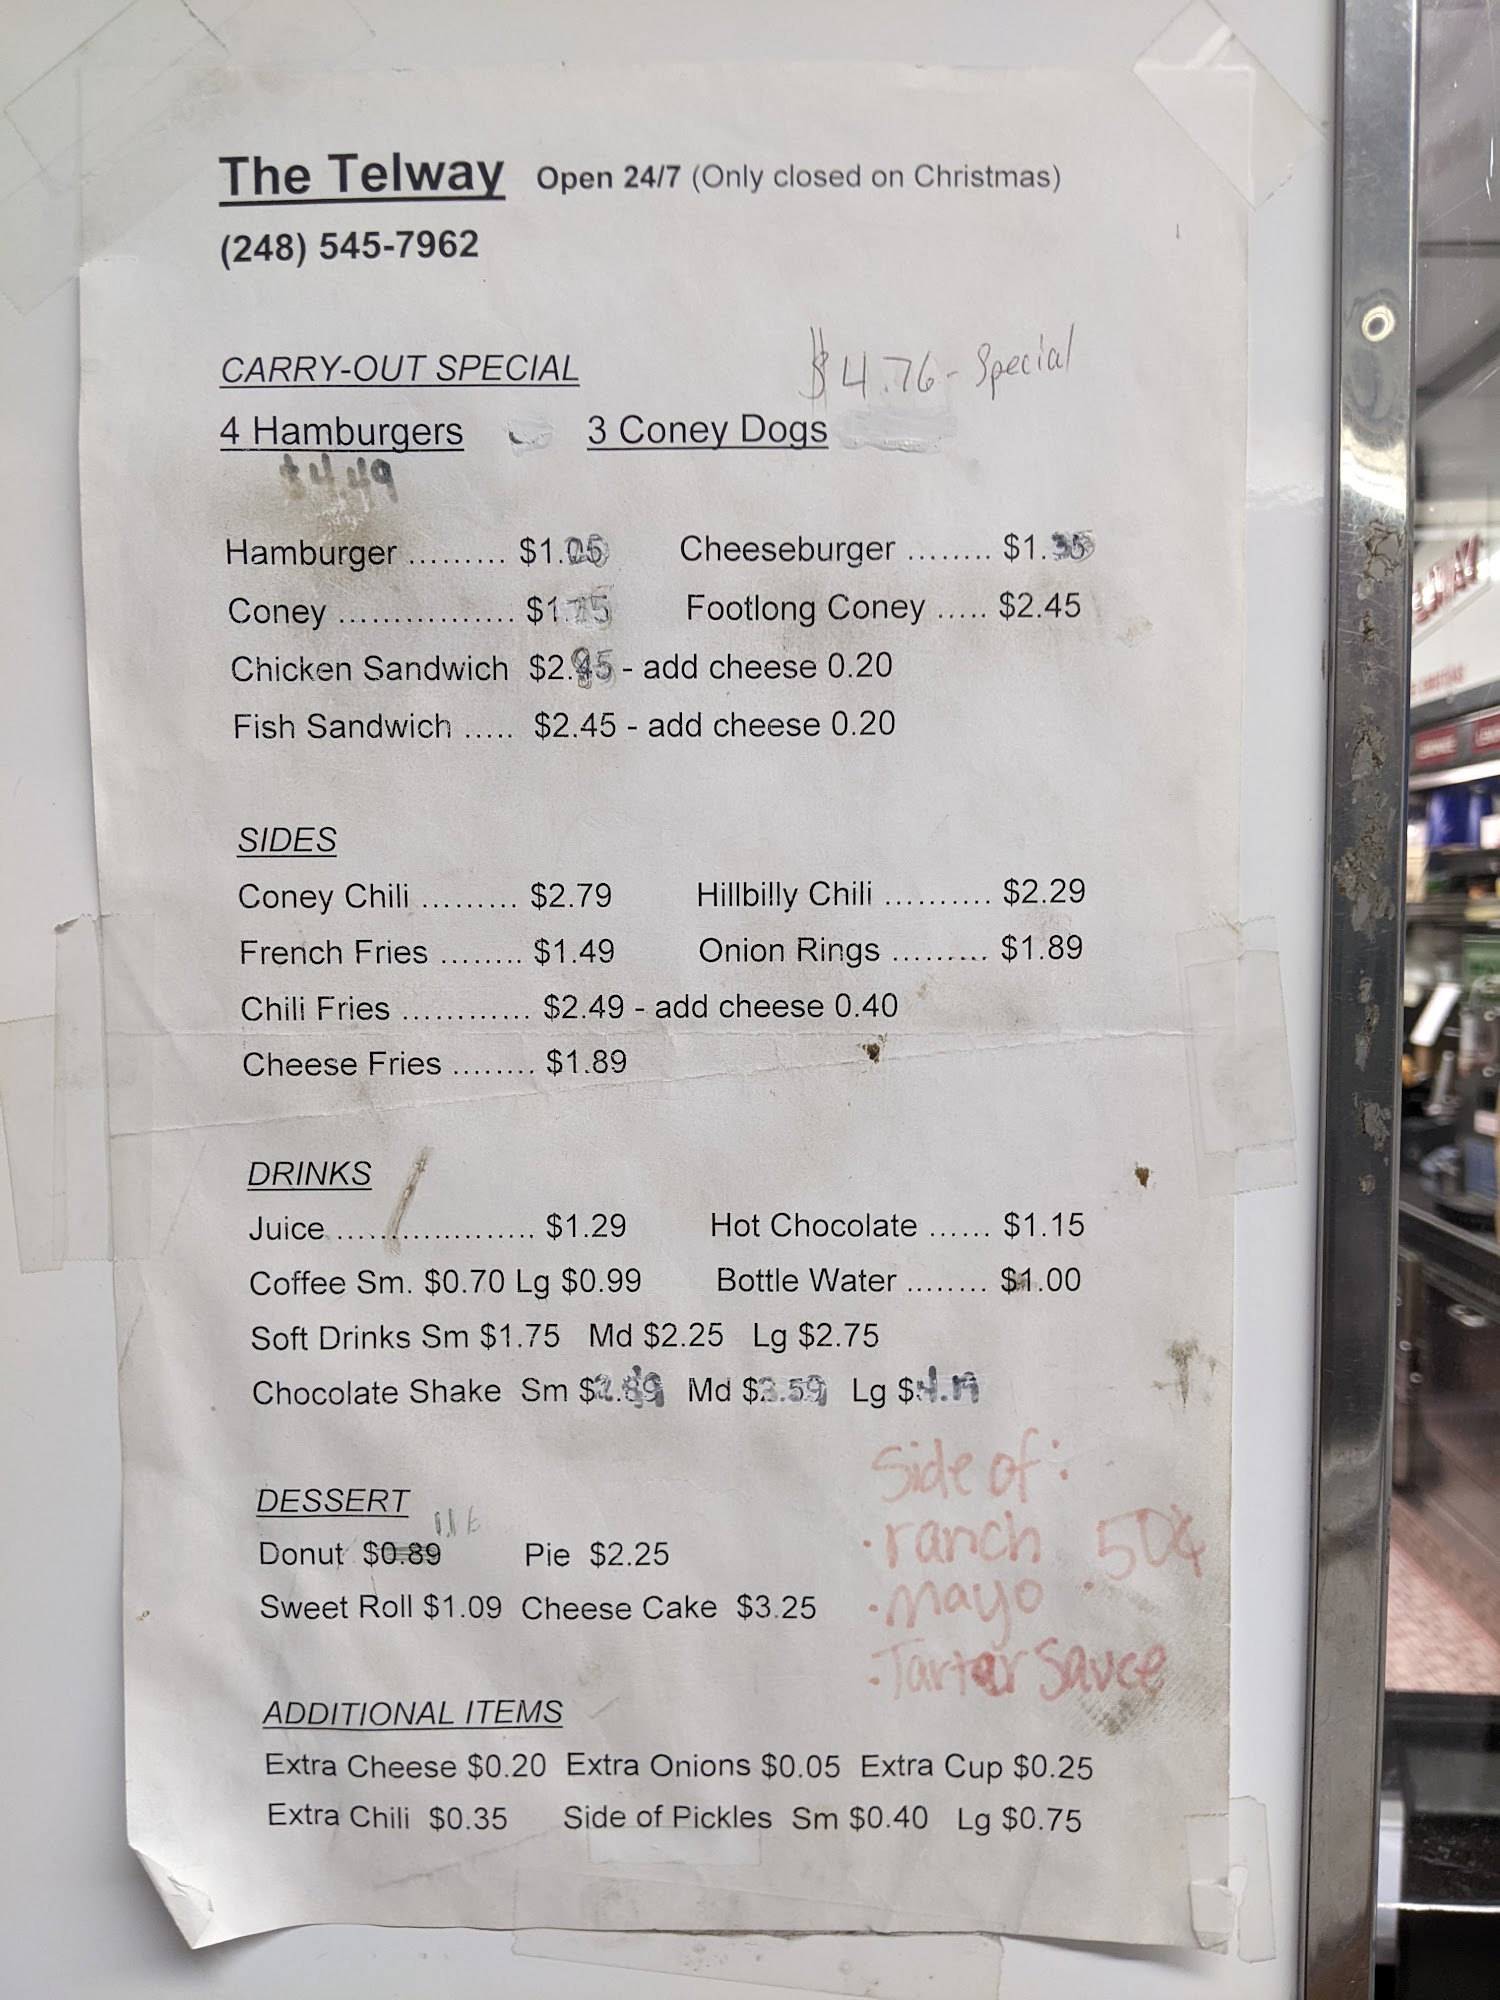 The Telway Open 24/7 (Only closed on Christmas)
(248) 545-7962
CARRY-OUT SPECIAL
$4.76 - Special
4 Hamburgers 3 Coney Dogs
$4.49
Hamburger ......... $1.05 Cheeseburger ........ $1.35
Coney ................ Footlong Coney ..... $2.45
Chicken Sandwich - add cheese 0.20
Fish Sandwich ..... $2.45 - add cheese 0.20
SIDES
Coney Chili ......... $2.79 Hillbilly Chili .......... $2.29
French Fries ........ $1.49 Onion Rings ......... $1.89
Chili Fries ............ $2.49 - add cheese 0.40
Cheese Fries ........ $1.89
DRINKS
Juice .................... $1.29 Hot Chocolate ...... $1.15
Coffee Sm. $0.70 Lg $0.99 Bottle Water ........ $1.00
Soft Drinks Sm $1.75 Md $2.25 Lg $2.75
Chocolate Shake Sm Md $3.59 Lg $4.19
Side of:
DESSERT
Donut $0.89 Pie $2.25
· ranch .50¢
Sweet Roll $1.09 Cheese Cake $3.25
· mayo
· Tartar Sauce
ADDITIONAL ITEMS
Extra Cheese $0.20 Extra Onions $0.05 Extra Cup $0.25
Extra Chili $0.35 Side of Pickles Sm $0.40 Lg $0.75